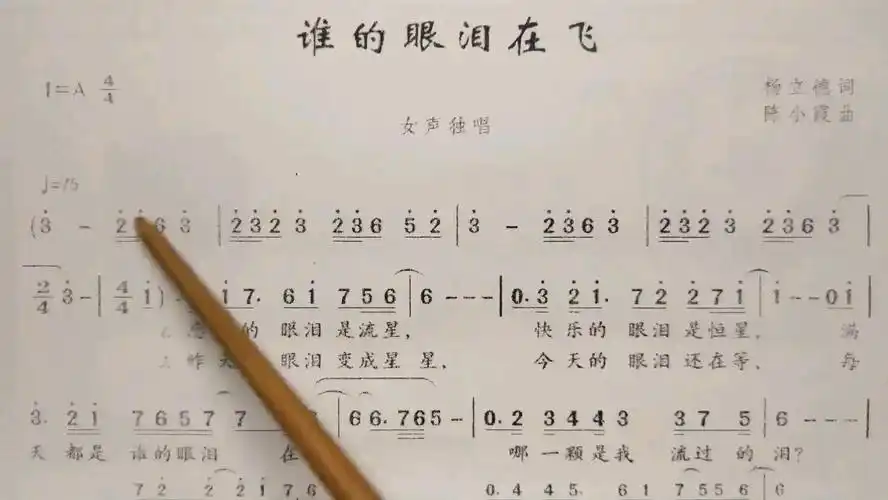 谁的眼泪在飞
1=A 4/4
杨立德词
陈小霞曲
女声独唱
♩=75
(3̇ - 2̇ 6 3̇ | 2̇3̇2̇ 3̇ 2̇3̇6 5̇ 2̇ | 3̇ - 2̇3̇6 3̇ | 2̇3̇2̇3̇ 2̇3̇6 3̇ |
2/4 3̇ - | 4/4 1̇) 1̇ 7. 6 1̇ 7 5 6 | 6 - - - | 0. 3̇ 2̇ 1̇. 7 2̇ 2̇ 7 1̇ | 1̇ - - 0 1̇ |
的 眼泪是流星, 快乐的 眼泪是恒星, 满
昨天 眼泪变成星 星, 今天的 眼泪还在等, 每
3̇. 2̇ 1̇ 7 6 5 7 7 6 | 6 6. 7 6 5 5 - | 0. 2 3 4 4 3 3 7 5 | 6 - - - |
天 都是 谁的眼泪 在 哪 一颗是我 流过的泪?
7 2̇ 2̇ 2̇ 1̇ 7. 6 0. 4 4 5. 6 1̇ 7 5 5 6 6